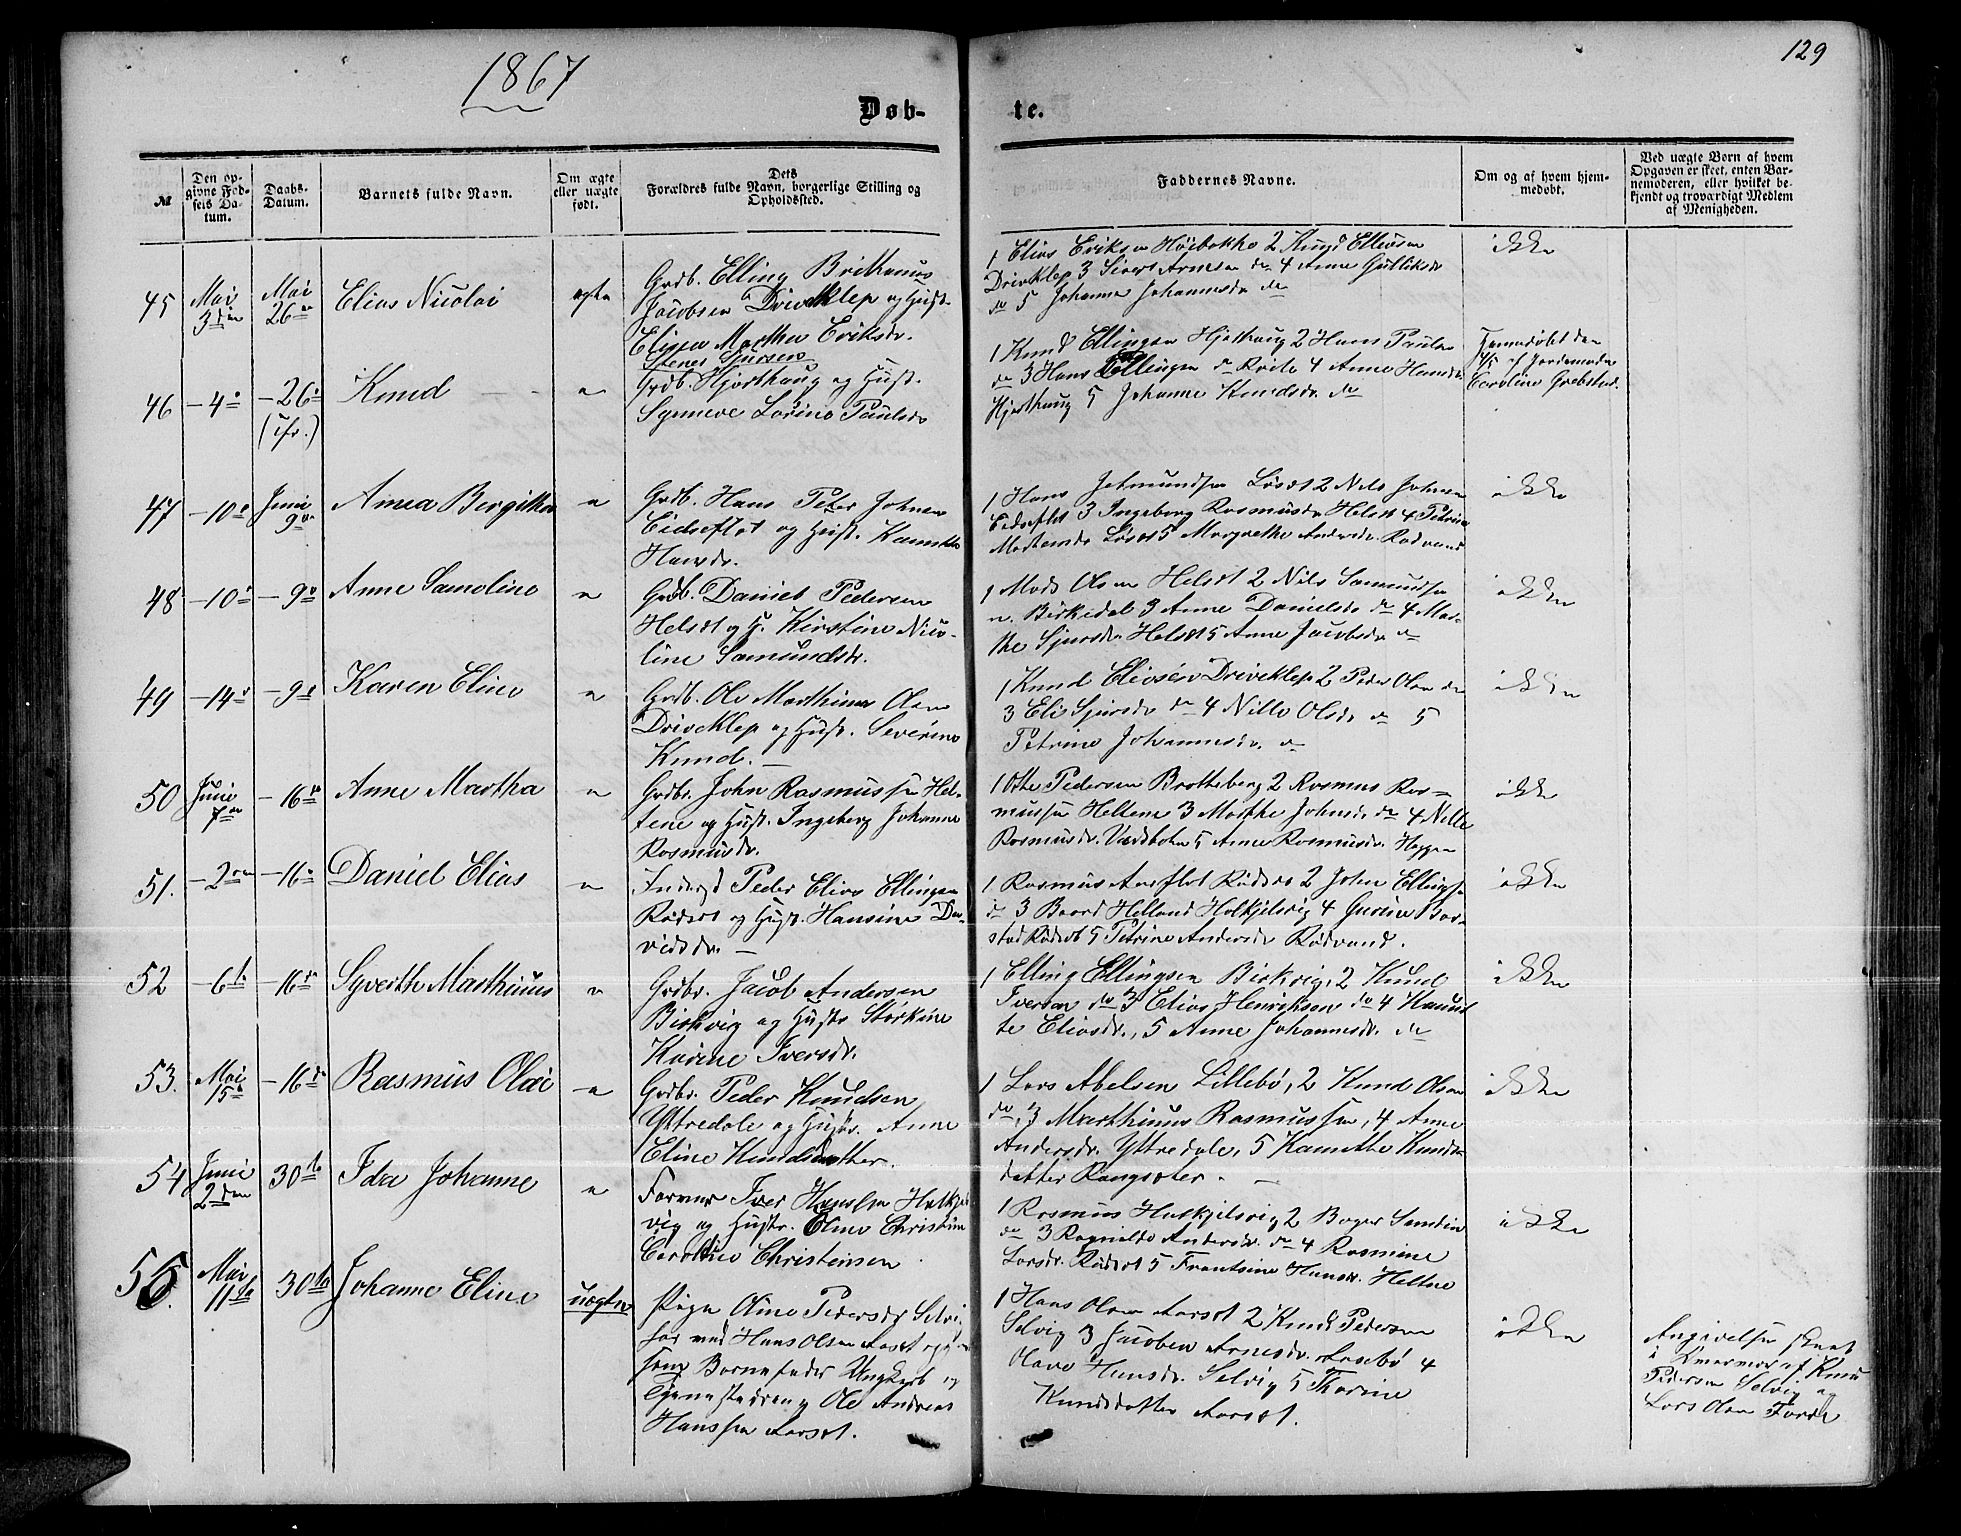 1867
129
Døb-
te.
№
Den op-
givne Fød-
sels Da-
tum.
Daabs-
Datum.
Barnets fulde Navn.
Om ægte
eller uægte
født.
Dets
Forældres fulde Navn, borgerlige Stilling og
Opholdssted.
Faddernes Navne.
Om og af hvem hjem-
medøbt.
Ved uægte Børn af hvem
Opgaven er skeet, enten Bar-
nemoderen, eller hvilket be-
kjendt og troværdigt Medlem
af Menigheden.
45 Mai 3den Mai 26de Elias Nicolai ægte
Grdb. Elling Brithanus
Jacobsen Driveklep og Hust.
Elisen Marthe Eriksdr.
1 Elias Eriksen Høibakke 2 Knud Elliasen
Driveklep 3 Sivert Arnesen do 4 Anne Gulliksdr
do 5 Johanne Johannesdr do
ikke
46 - 4de - 26de Knud - "
(ifr.)
Stener Sjursen
Grdb. Hjorthaug og Hust.
Synneve Lorine Paulsdr
1 Knud Ellingsen Hjorthaug 2 Hans Paulsen
do 3 Hans Ellingsen do Roite 4 Anne Hansdr.
Hjorthaug 5 Johanne Knudsdr. do
Hjemmedøbt den
4/5 af Jordemoder
Caroline Grebstad.
47 - 10de Juni 9de Anna Bergitha "
Grdb. Hans Peter Johnsen
Eidseflot og Hust. Karnithe
Hansdr.
1 Hans Jetmundsen Løset 2 Nils Johnsen
Eidseflot 3 Ingeborg Rasmusdr Helset 4 Petrine
Mortensdr Løset 5 Margrethe Andersdr. Rødvand
ikke
48 - 10de - 9de Anne Samoline "
Grdb. Daniel Pedersen
Helset og H. Kirstine Nico-
line Samundsdr.
1 Mads Olsen Helset 2 Nils Samundsen
Birkedal 3 Anne Danielsdr do 4 Mar-
the Sjursdr. Helset 5 Anne Jacobsdr. do
ikke
49 - 14de - 9de Karen Eline "
Grdb. Ole Marthinus Olsen
Driveklep og Hust. Severine
Knud. -
1 Knud Eliasen Driveklep 2 Peder Olsen do
3 Eli Sjursdr do 4 Nille Olsdr. do 5
Petrine Johannesdr. do
ikke
50 Juni 7de - 16de Anne Martha "
Grdbr. John Rasmussen Hel-
tene og Hust. Ingeborg Johanne
Rasmusdr.
1 Otte Pedersen Bratteberg 2 Rasmus Ras-
mussen Heltene 3 Marthe Johnsdr. do 4 Nille
Rasmusdr. 5 Anne Rasmusdr. Haggen
ikke
51. - 2den - 16de Daniel Elias "
Inderst Peder Elias Ellingsen
Rødset og Hust. Hansine Da-
vidsdr. -
1 Rasmus Aarflot Rødset 2 John Ellingsen
do 3 Baard Helland Holkjelsvig 4 Gurine
Rødset 5 Petrine Andersdr Rødvand.
ikke
52 - 6te - 16de Syverth Marthinus "
Grdbr. Jacob Andersen
Birkvig og Hustr Størkine
Karine Iversdr.
1 Elling Ellingsen Birkvig, 2 Knud
Iversen do 3 Elias Henriksen do 4 Karnit-
te Eliasdr., 5 Anne Johannesdr. do
ikke
53. Mai 15de - 16de Rasmus Olai "
Grdbr. Peder Knudsen
Yttredale og Hustr. Anne
Eline Knudsdatter.
1 Lars Abelsen Lillebø, 2 Knud Olsen
do, 3 Marthinus Rasmussen, 4 Anne
Andersdr. Yttredale, 5 Karnithe Knuds-
datter Rangsæter. -
ikke
54 Juni 2den 30te Ida Johanne "
Farver Iver Hansen Holkjels-
vig og Hustr. Oline Christine
Caroline Christensen.
1 Rasmus Holkjelsvig 2 Boger Sandin
do 3 Ragnilde Andersdr. do 4 Rasmine
Larsdr. Rødset 5 Frantsine Hansdr. Heltne
ikke
55. Mai 11te 30te Johanne Eline uægte
Pige Oline Pedersdr Selvig
har med Hans Olsen Aaset
som Barnefader Ungkarl og
Tjenestedreng Ole Andreas
Hanssen Aarset.
1 Hans Olsen Aarset 2 Knud Pedersen
Selvig 3 Jacobea Arnesdr. Aasebø 4
Olave Hansdr. Selvig 5 Thorine
Knudsdatter Aarset.
ikke
Angivelsen skeet
af Knud
Pedersen Selvig og
Lars Olsen Førde